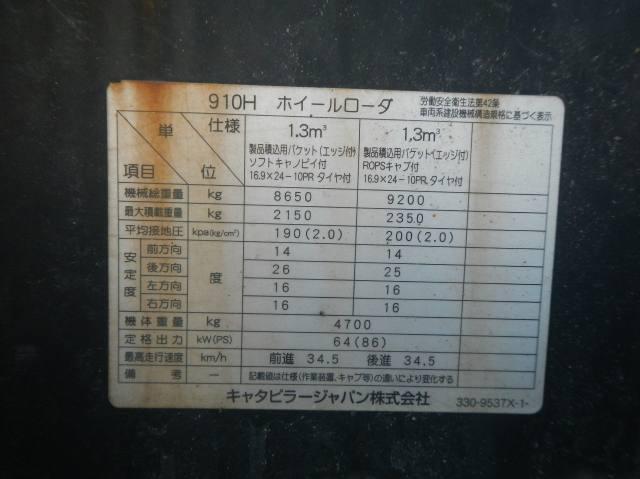 910H ホイールローダ 労働安全衛生法第42条
車両系建設機械構造規格に基づく表示
単 仕様 1.3m³ 1.3m³
製品積込用バケット(エッジ付) 製品積込用バケット(エッジ付)
ソフトキャノピイ付 ROPSキャブ付
項目 位 16.9×24-10PR タイヤ付 16.9×24-10PR.タイヤ付
機械総重量 kg 8650 9200
最大積載重量 kg 2150 2350
平均接地圧 kpa(kg/cm²) 190(2.0) 200(2.0)
安定度 前方向 度 14 14
後方向 26 25
左方向 16 16
右方向 16 16
機体重量 kg 4700
定格出力 kW(PS) 64(86)
最高走行速度 km/h 前進 34.5 後進 34.5
備考 - 記載値は仕様(作業装置、キャブ等)の違いにより変化する
キャタピラージャパン株式会社 330-9537X-1-